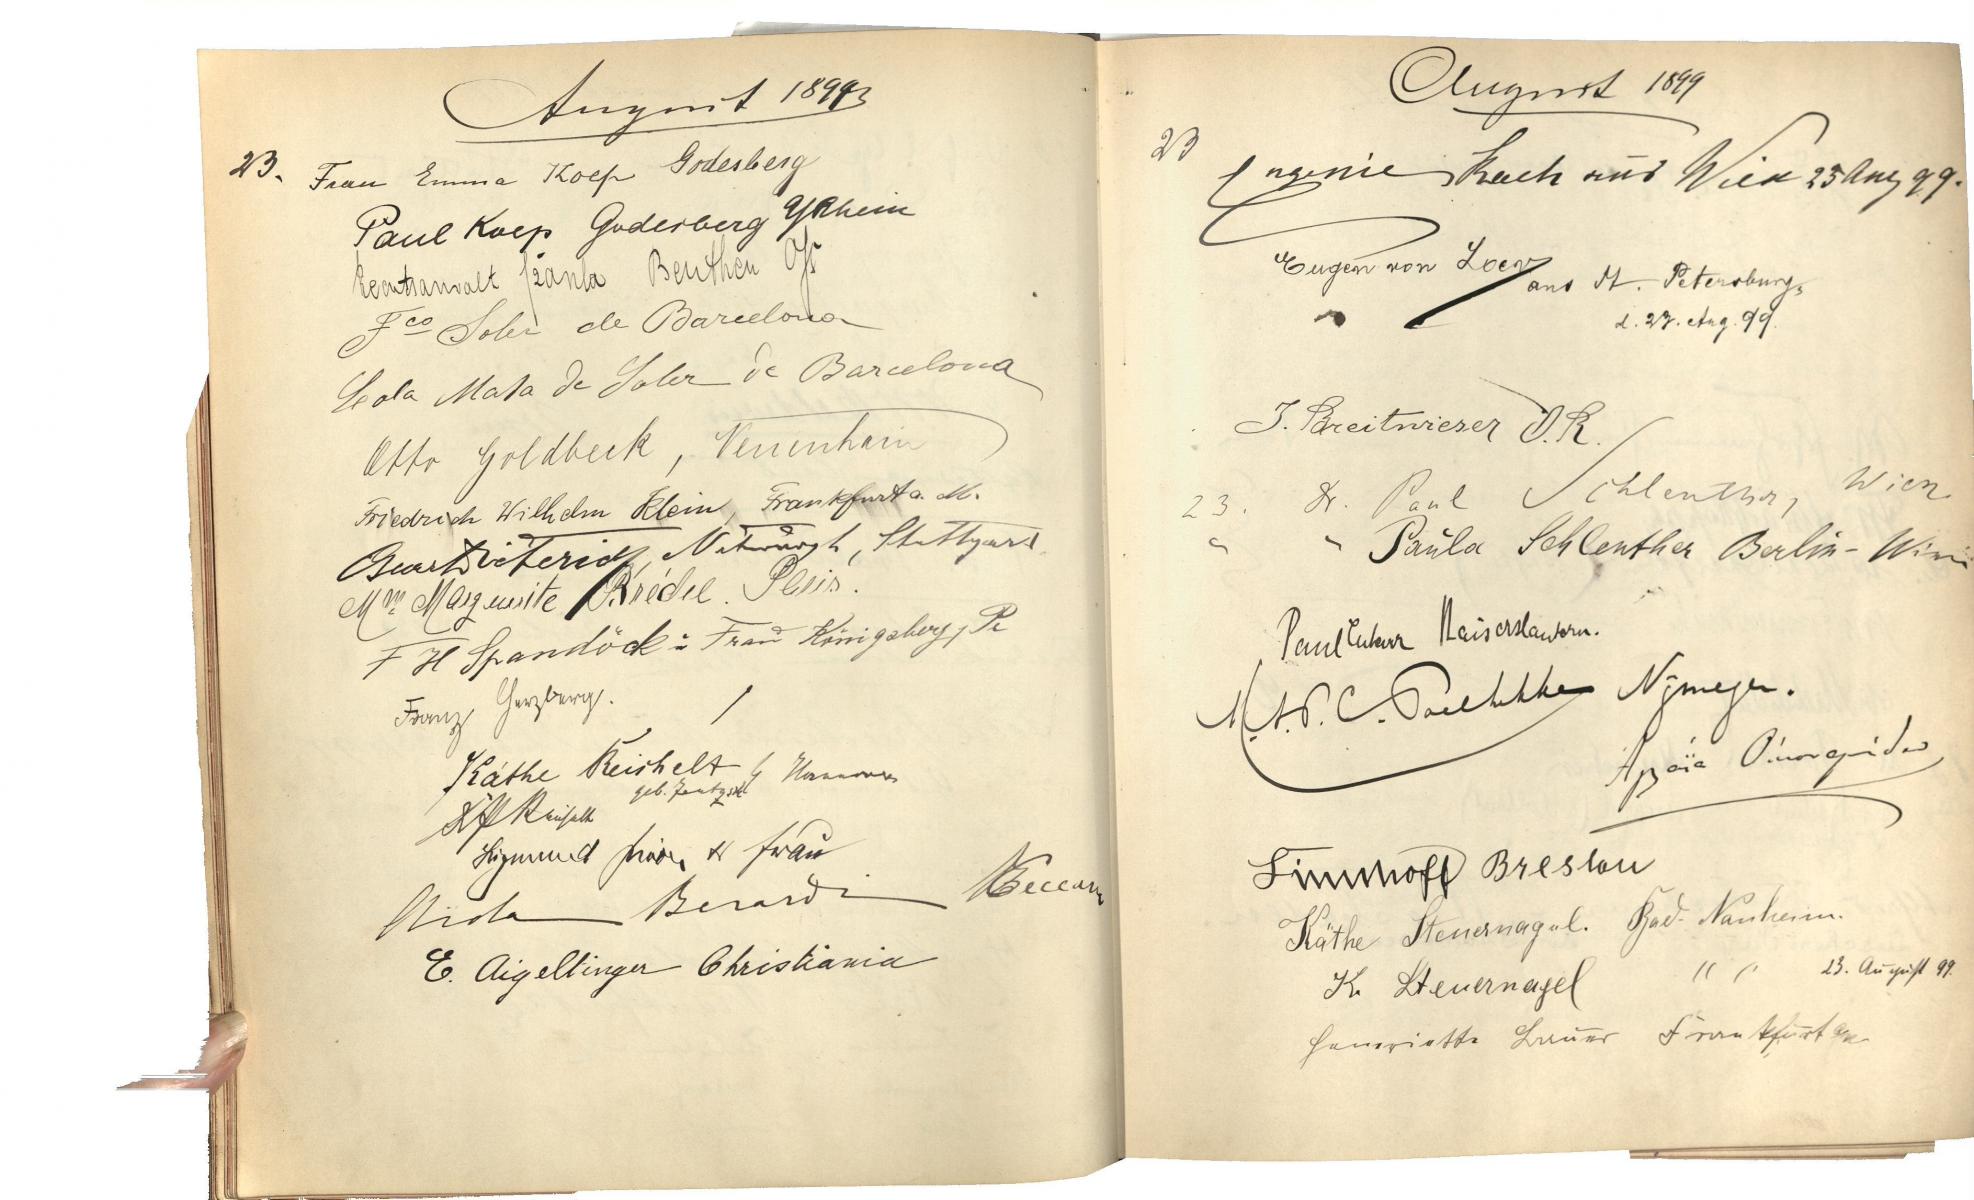 August 1899
23. Frau Emma Koep Godesberg
Paul Koep Godesberg a/Rhein
Rechtsanwalt Beuthen O/S
Fco Soler de Barcelona
Lola Mata de Soler de Barcelona
Otto Goldbeck, Neuenhain
Friedrich Wilhelm Klein, Frankfurt a. M.
Stuttgart
Mme Marguerite Brédel. Paris.
F H Spandöck u Frau Königsberg, Pr
Franz Herzberg.
Käthe Reichelt Hannover
geb.
Reichelt
Sigmund & Frau
Nicola Berardi
E. Aigeltinger Christiania
August 1899
23 Eugenie Koch aus Wien 23 Aug 99.
Eugen von aus St. Petersburg,
d. 23. Aug. 99.
J. Breitwieser
23. Dr. Paul Schlenther, Wien
" " Paula Schlenther Berlin-Wien
Paul Kaiserslautern.
Nijmegen.
Breslau
Käthe Steuernagel. Bad-Nauheim.
K. Steuernagel " " 23. August 99.
Henriette Lauer Frankfurt a/M